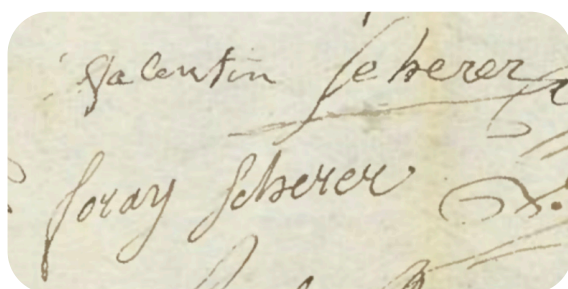 Valentin Scherer
foray Scherer